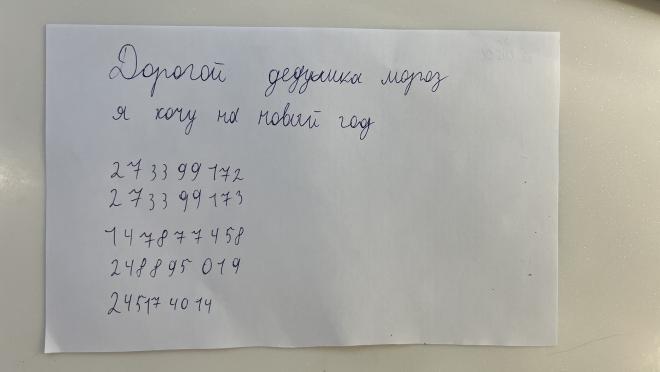 Дорогой дедушка мороз
я хочу на новый год
273399172
273399173
147877458
248895019
245174014